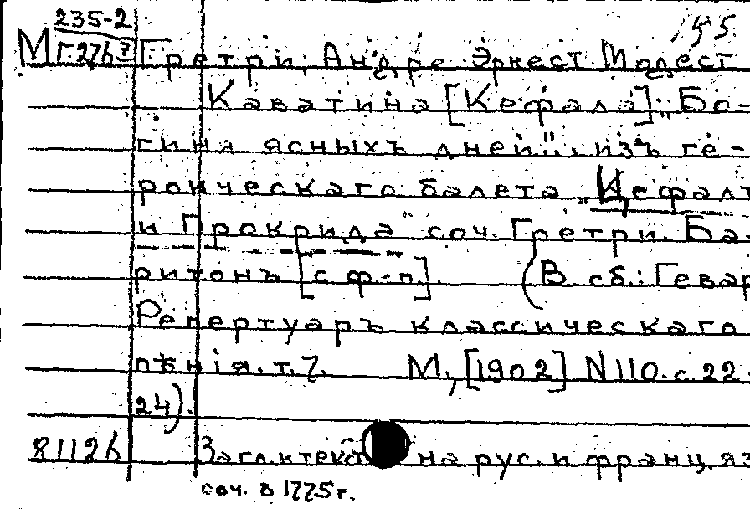 235-2
155.
М Г.276³ Гретри, Андре Эрнест Модест
Каватина [Кефала] „Бо-
гиня ясныхъ дней"... изъ ге-
роическаго балета „Цефалъ
и Прокрида" соч. Гретри. Ба-
ритонъ [с ф-п]. (В сб.: Гевар
Репертуаръ классическаго
пѣнія. т. 7. М., [1902] N 110. с. 22-
24).
81126 Загл. и текст на рус. и франц. яз
соч. в 1775 г.